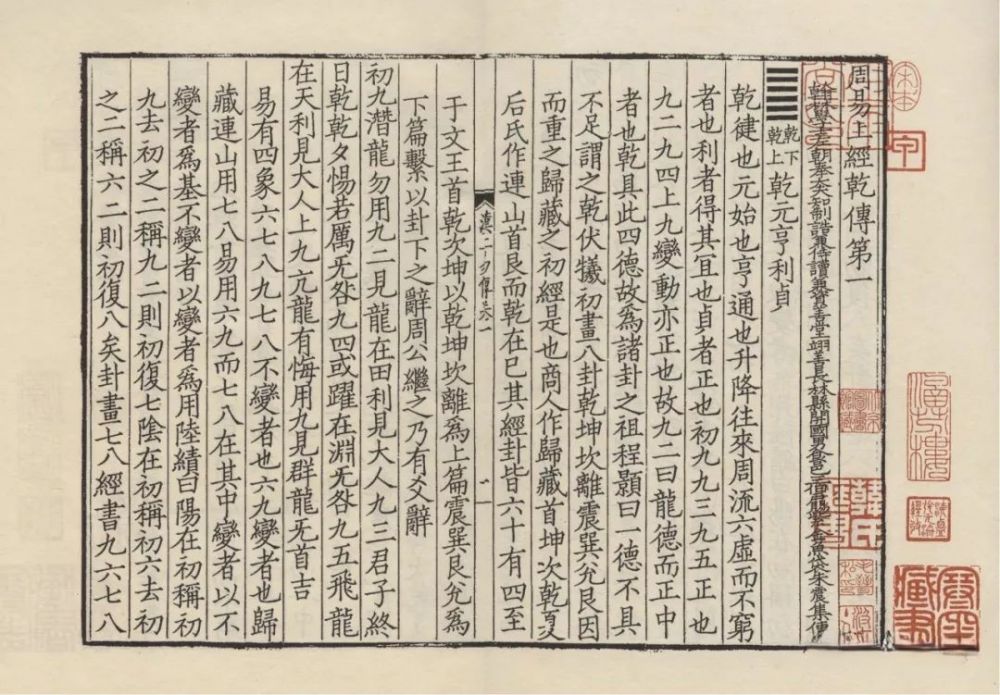 周易上經乾傳第一
翰林學士左朝奉大夫知制誥兼侍讀兼資善堂翊善長林縣開國男食邑三百戶賜紫金魚袋朱震集傳
乾下
乾上
乾元亨利貞
乾健也元始也亨通也升降往來周流六虛而不窮
者也利者得其冝也貞者正也初九九三九五正也
九二九四上九變動亦正也故九二曰龍德而正中
者也乾具此四德故爲諸卦之祖程顥曰一德不具
不足謂之乾伏犧初畫八卦乾坤坎離震巽兊艮因
而重之歸藏之初經是也商人作歸藏首坤次乾夏
后氏作連山首艮而乾在巳其經卦皆六十有四至
漢上易傳卷一
一
于文王首乾次坤以乾坤坎離爲上篇震巽艮兊爲
下篇繫以卦下之辭周公繼之乃有爻辭
初九潛龍勿用九二見龍在田利見大人九三君子終
日乾乾夕惕若厲无咎九四或躍在淵无咎九五飛龍
在天利見大人上九亢龍有悔用九見群龍无首吉
易有四象六七八九七八不變者也六九變者也歸
藏連山用七八易用六九而七八在其中變者以不
變者爲基不變者以變者爲用陸績曰陽在初稱初
九去初之二稱九二則初復七陰在初稱初六去初
之二稱六二則初復八矣卦畫七八經書九六七八
宋本
海樓
藏書